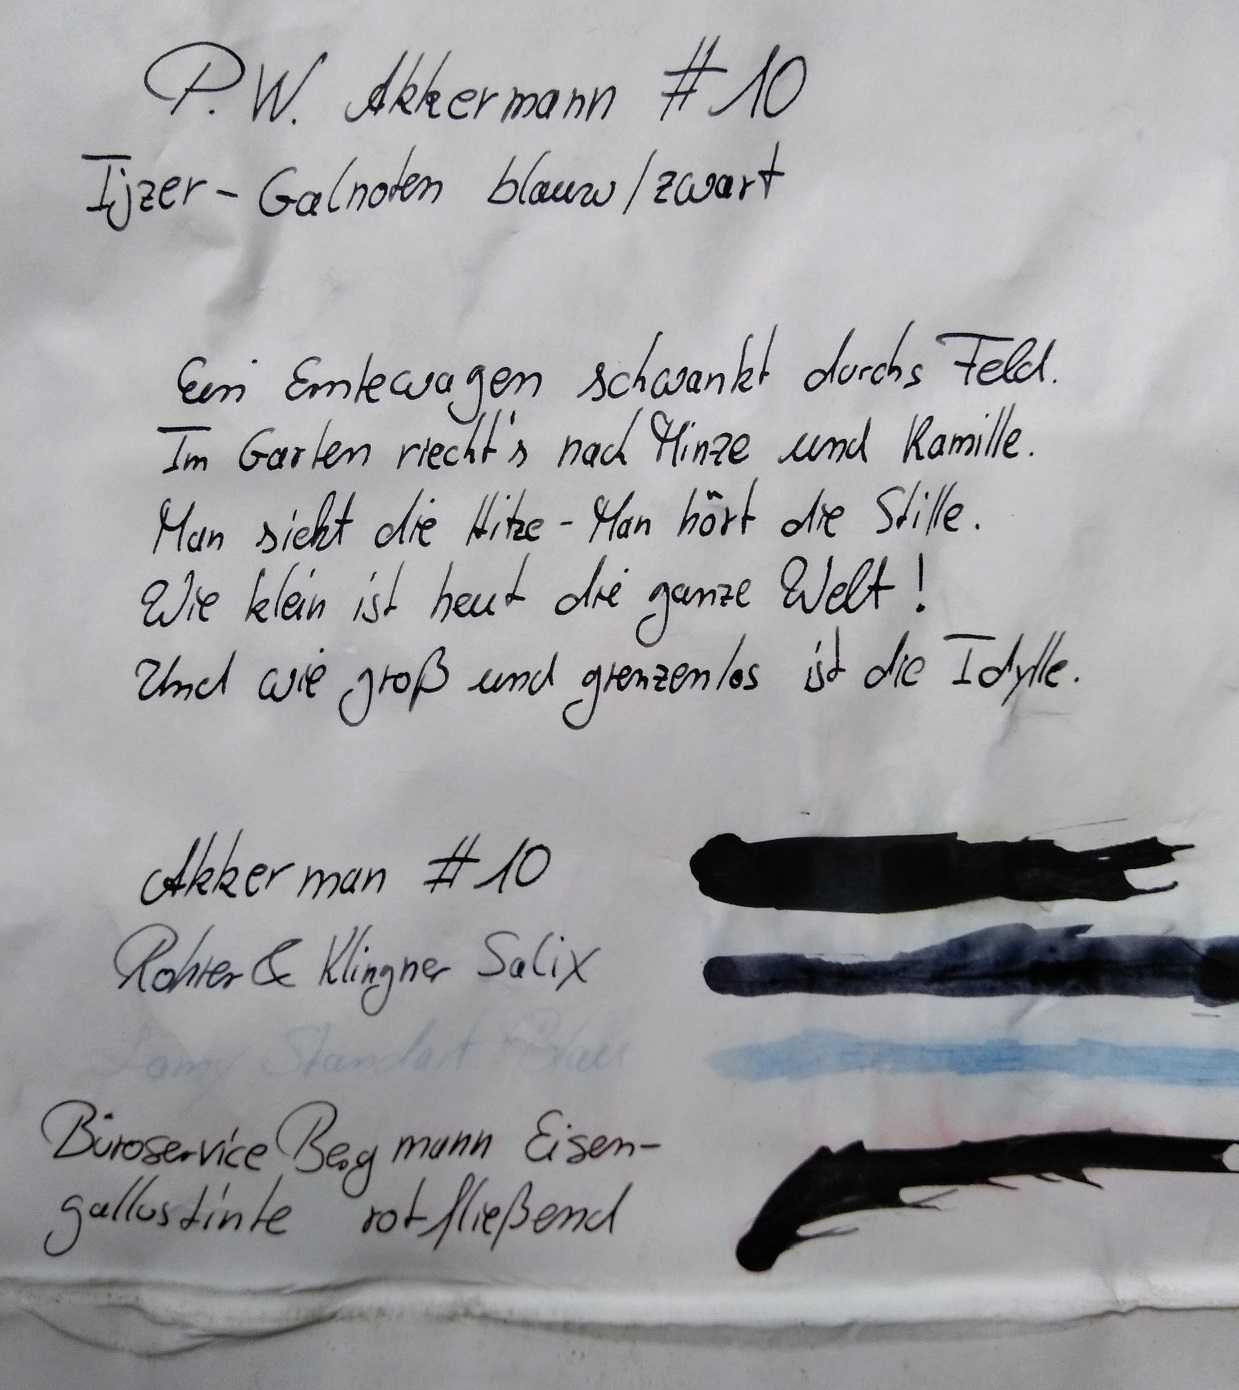 P.W. Akkermann #10
Ijzer-Galnoten blauw/zwart
Ein Erntewagen schwankt durchs Feld.
Im Garten riecht's nach Minze und Kamille.
Man sieht die Hitze - Man hört die Stille.
Wie klein ist heut die ganze Welt!
Und wie groß und grenzenlos ist die Idylle.
Akkerman #10
Rohrer & Klingner Salix
Lamy Standart Blau
Büroservice Bergmann Eisen-
gallustinte rotfließend